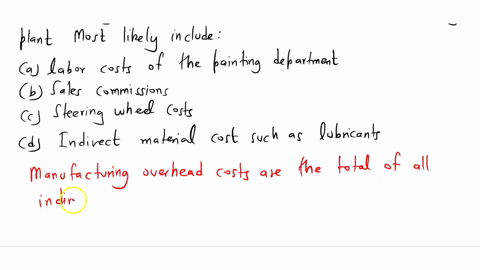 plant Most likely include:
(a) labor costs of the painting department
(b) Sales commissions
(c) Steering wheel costs
(d) Indirect material cost such as lubricants
Manufacturing overhead costs are the total of all
indir